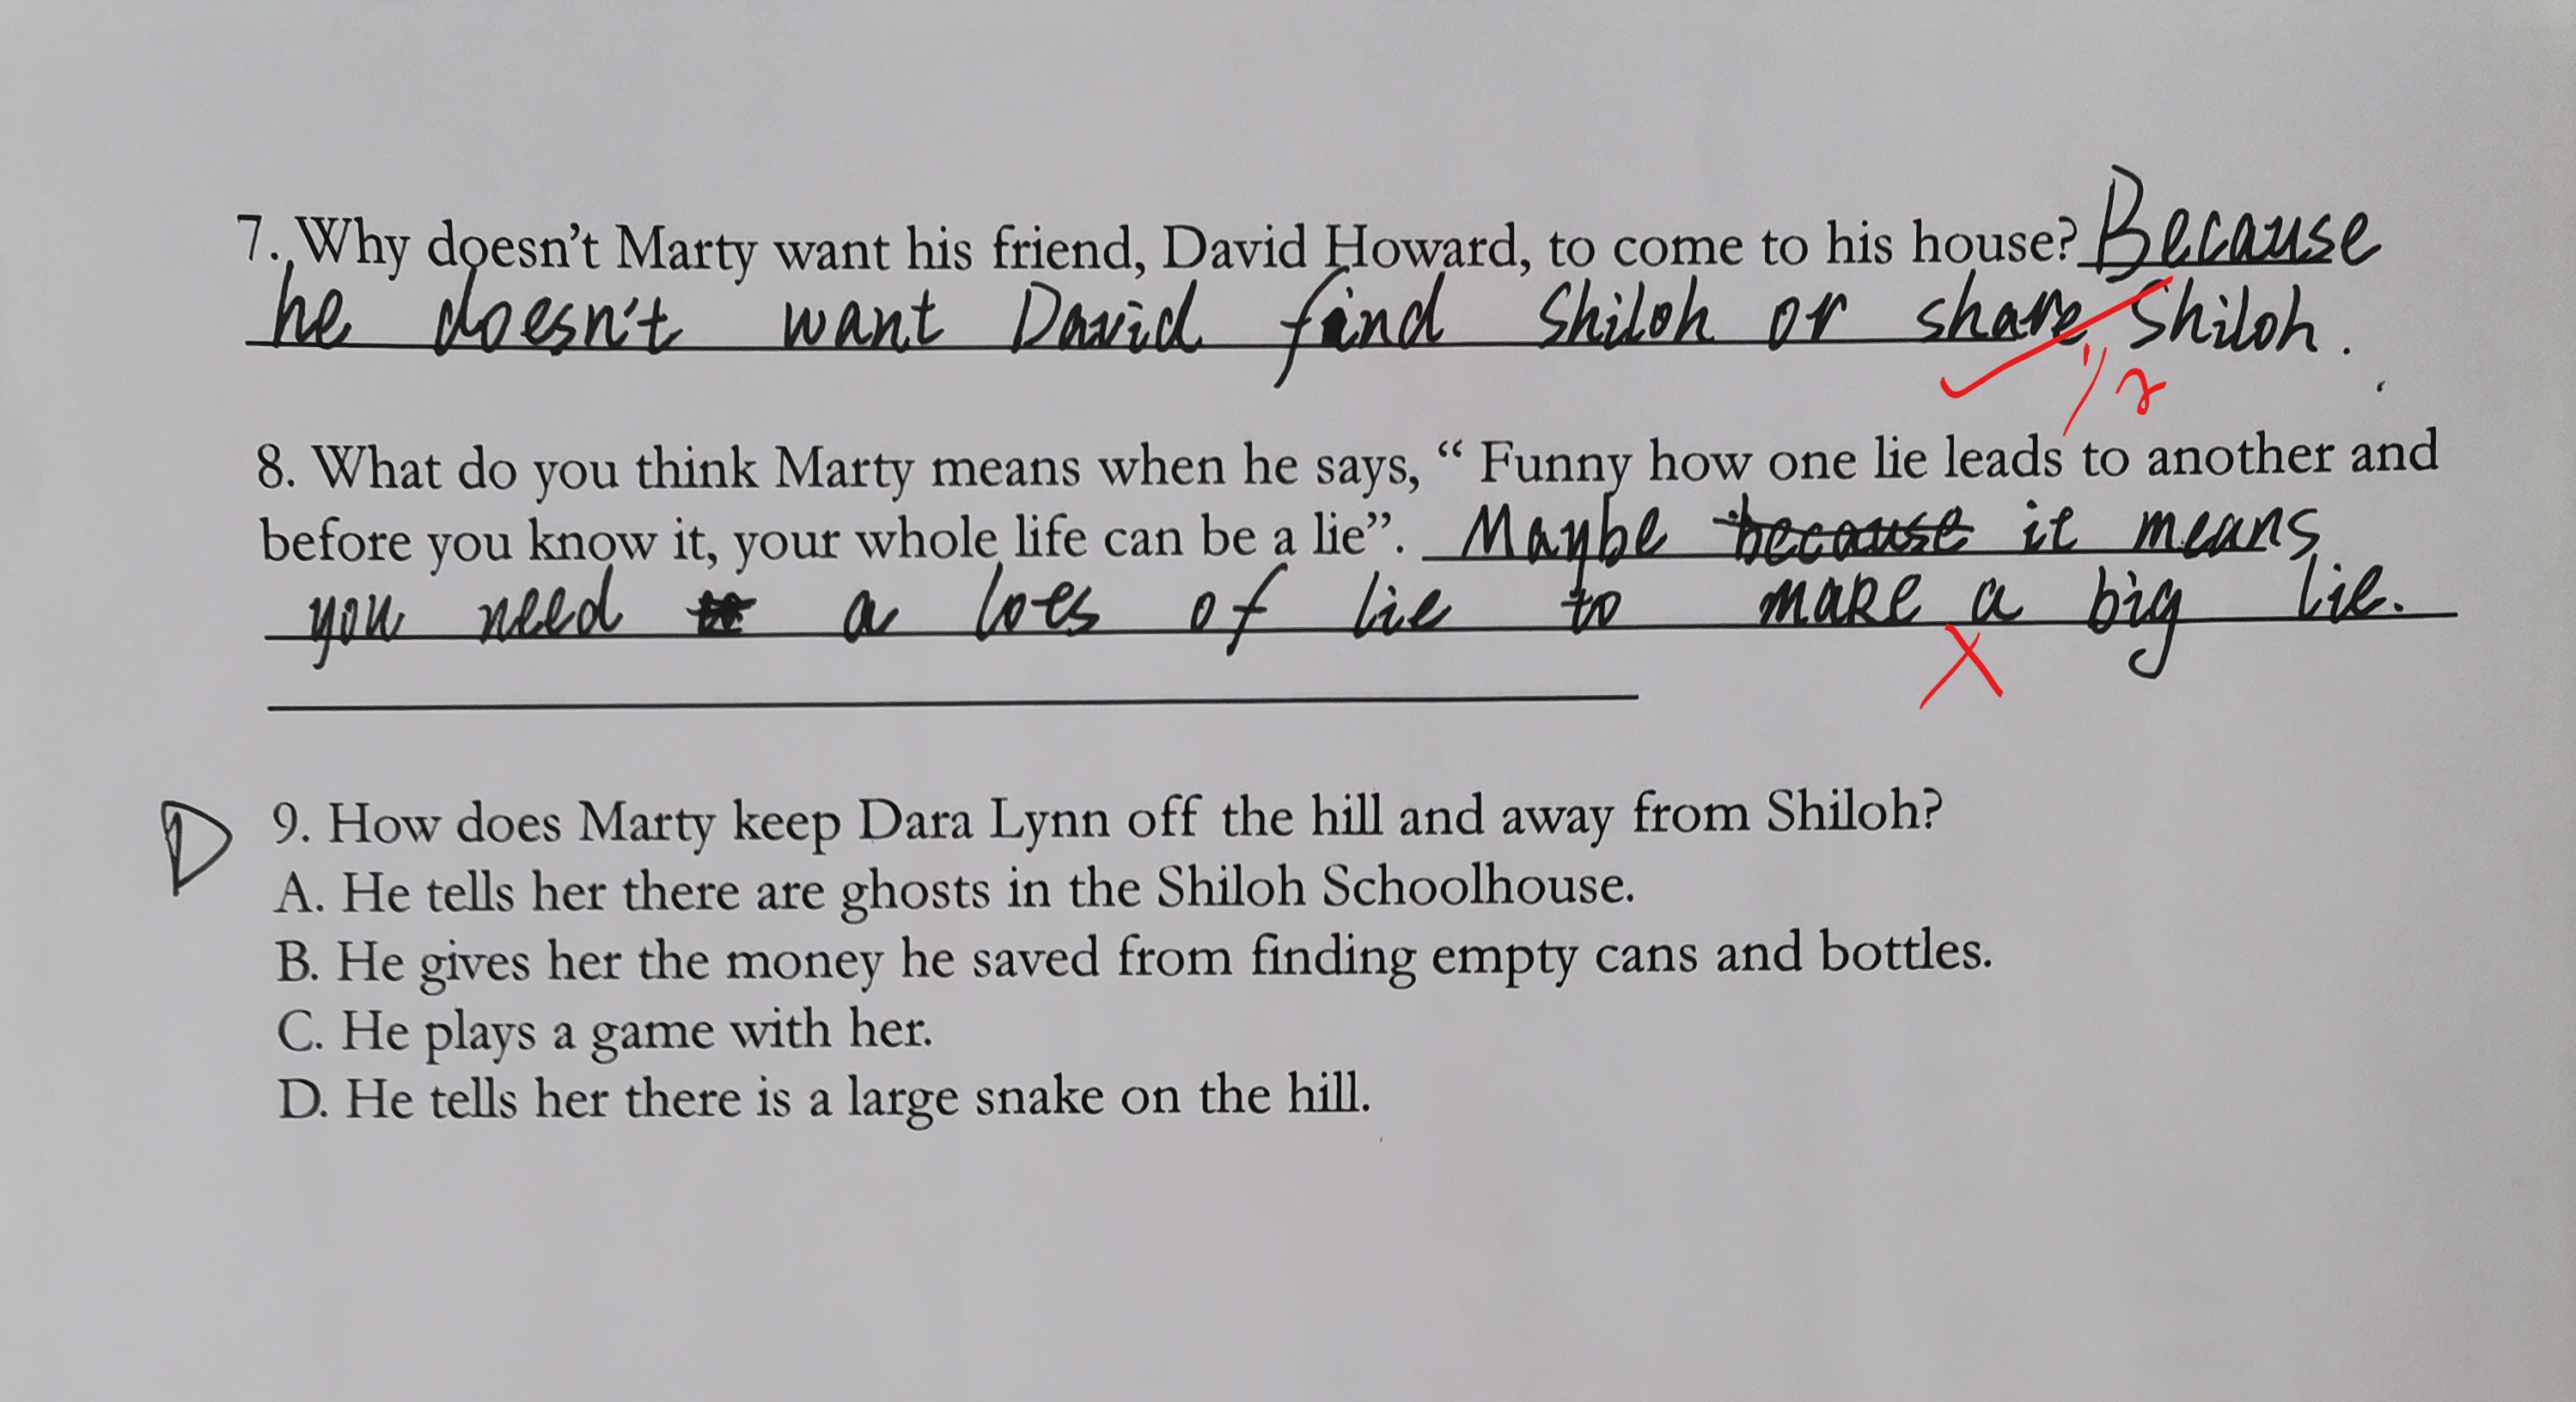 7. Why doesn't Marty want his friend, David Howard, to come to his house? Because
he doesn't want David find Shiloh or share Shiloh.
1/2
8. What do you think Marty means when he says, “ Funny how one lie leads to another and
before you know it, your whole life can be a lie”. Maybe because it means
you need a lots of lie to make a big lie.
D 9. How does Marty keep Dara Lynn off the hill and away from Shiloh?
A. He tells her there are ghosts in the Shiloh Schoolhouse.
B. He gives her the money he saved from finding empty cans and bottles.
C. He plays a game with her.
D. He tells her there is a large snake on the hill.